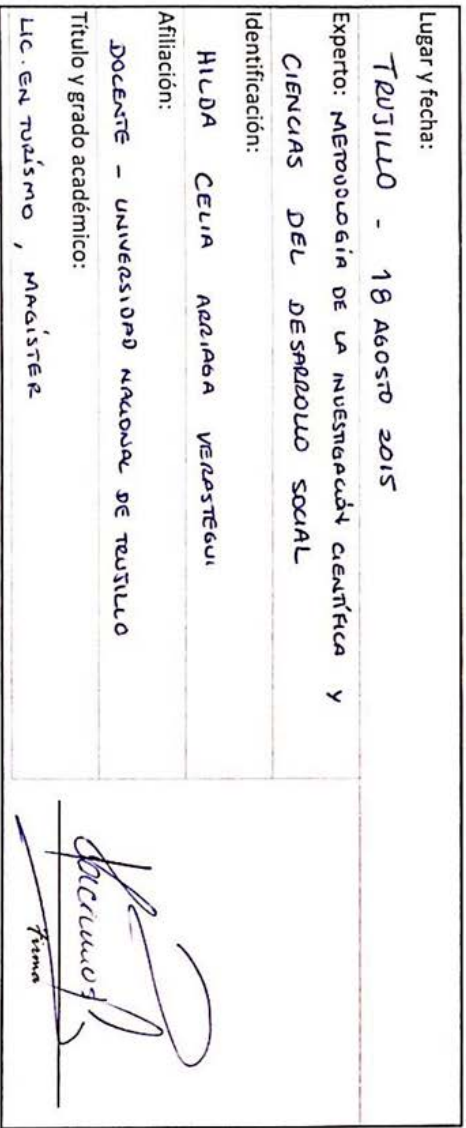 Lugar y fecha:
TRUJILLO - 18 AGOSTO 2015
Experto: METODOLOGÍA DE LA INVESTIGACIÓN CIENTÍFICA Y
CIENCIAS DEL DESARROLLO SOCIAL
Identificación:
HILDA CELIA ARRIAGA VERASTEGUI
Afiliación:
DOCENTE - UNIVERSIDAD NACIONAL DE TRUJILLO
Título y grado académico:
LIC. EN TURÍSMO, MAGÍSTER
Firma